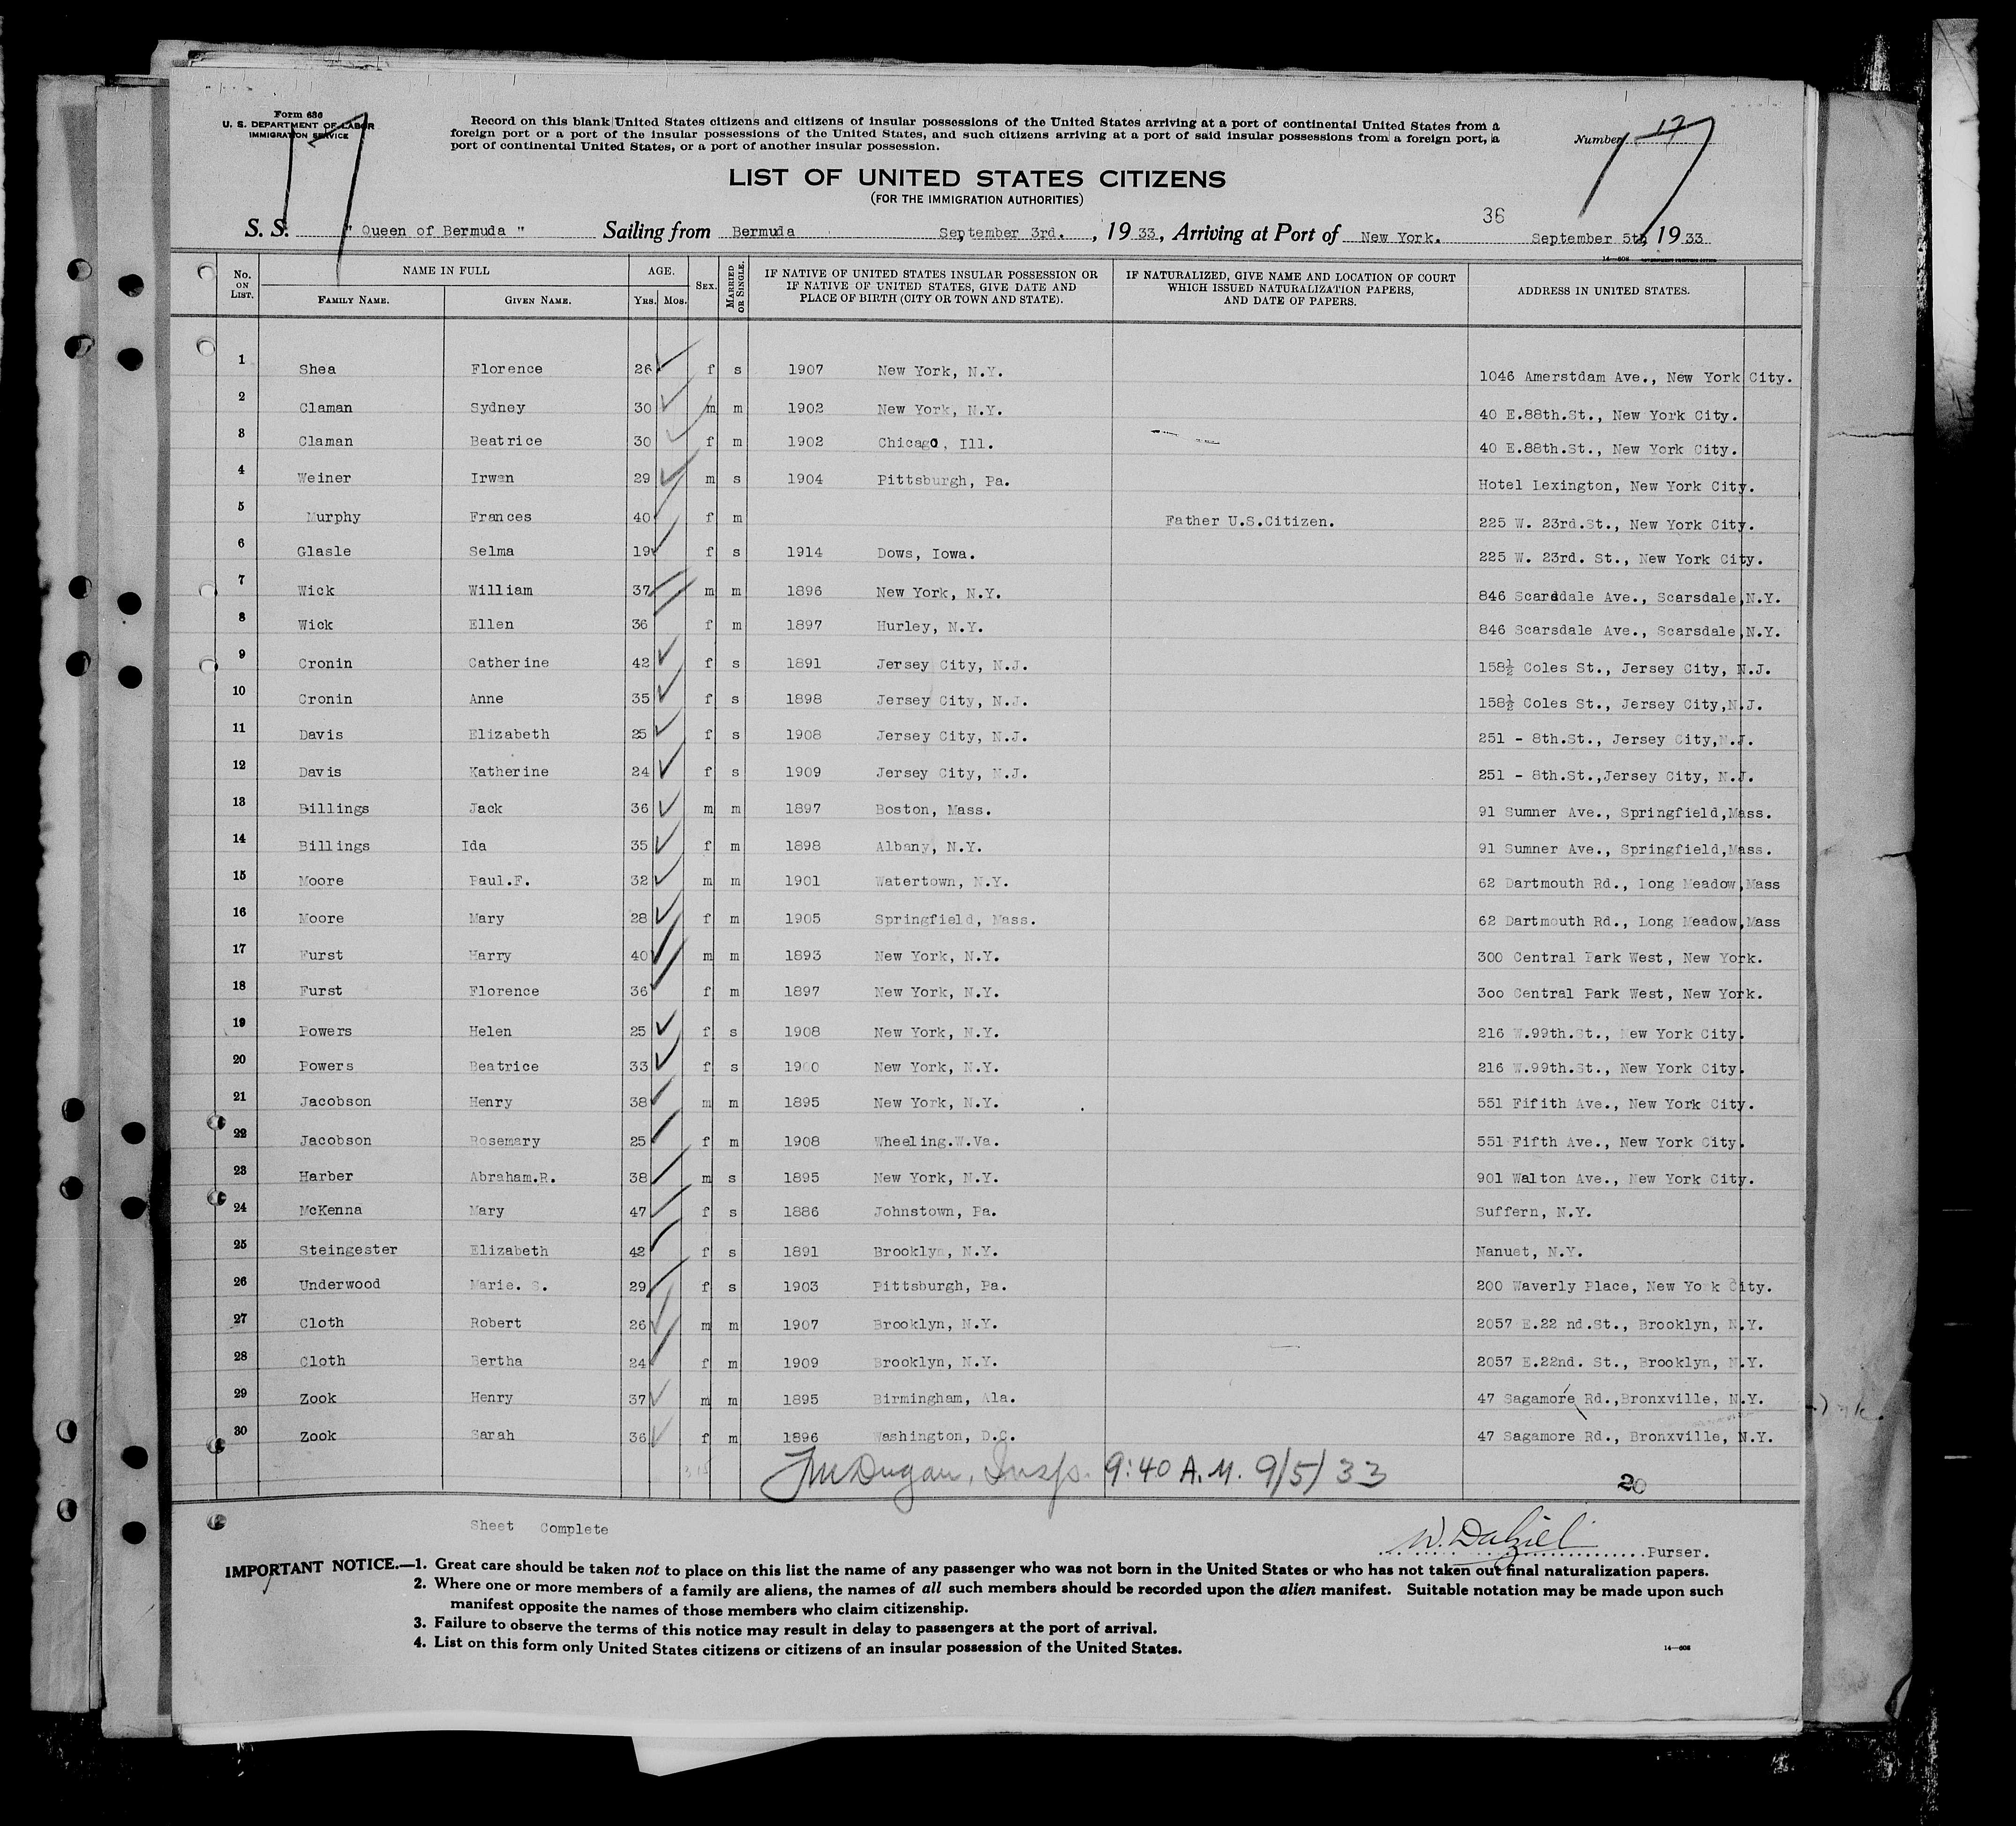 Form 630
U. S. DEPARTMENT OF LABOR
IMMIGRATION SERVICE
17
Record on this blank United States citizens and citizens of insular possessions of the United States arriving at a port of continental United States from a
foreign port or a port of the insular possessions of the United States, and such citizens arriving at a port of said insular possessions from a foreign port, a
port of continental United States, or a port of another insular possession.
Number 17
17
LIST OF UNITED STATES CITIZENS
(FOR THE IMMIGRATION AUTHORITIES)
36
S. S. " Queen of Bermuda " Sailing from Bermuda September 3rd. , 19 33, Arriving at Port of New York. September 5th 19 33
No. ON LIST. NAME IN FULL FAMILY NAME. GIVEN NAME. AGE. YRS. MOS. SEX. MARRIED OR SINGLE. IF NATIVE OF UNITED STATES INSULAR POSSESSION OR IF NATIVE OF UNITED STATES, GIVE DATE AND PLACE OF BIRTH (CITY OR TOWN AND STATE). IF NATURALIZED, GIVE NAME AND LOCATION OF COURT WHICH ISSUED NATURALIZATION PAPERS, AND DATE OF PAPERS. ADDRESS IN UNITED STATES.
1 Shea Florence 26 f s 1907 New York, N.Y. 1046 Amerstdam Ave., New York City.
2 Claman Sydney 30 m m 1902 New York, N.Y. 40 E.88th.St., New York City.
3 Claman Beatrice 30 f m 1902 Chicago, Ill. 40 E.88th.St., New York City.
4 Weiner Irwen 29 m s 1904 Pittsburgh, Pa. Hotel Lexington, New York City.
5 Murphy Frances 40 f m Father U.S.Citizen. 225 W. 23rd.St., New York City.
6 Glasle Selma 19 f s 1914 Dows, Iowa. 225 W. 23rd. St., New York City.
7 Wick William 37 m m 1896 New York, N.Y. 846 Scarddale Ave., Scarsdale,N.Y.
8 Wick Ellen 36 f m 1897 Hurley, N.Y. 846 Scarsdale Ave., Scarsdale,N.Y.
9 Cronin Catherine 42 f s 1891 Jersey City, N.J. 158½ Coles St., Jersey City, N.J.
10 Cronin Anne 35 f s 1898 Jersey City, N.J. 158½ Coles St., Jersey City,N.J.
11 Davis Elizabeth 25 f s 1908 Jersey City, N.J. 251 - 8th.St., Jersey City,N.J.
12 Davis Katherine 24 f s 1909 Jersey City, N.J. 251 - 8th.St.,Jersey City, N.J.
13 Billings Jack 36 m m 1897 Boston, Mass. 91 Sumner Ave., Springfield,Mass.
14 Billings Ida 35 f m 1898 Albany, N.Y. 91 Sumner Ave., Springfield,Mass.
15 Moore Paul.F. 32 m m 1901 Watertown, N.Y. 62 Dartmouth Rd., Long Meadow,Mass
16 Moore Mary 28 f m 1905 Springfield, Mass. 62 Dartmouth Rd., Long Meadow,Mass
17 Furst Harry 40 m m 1893 New York, N.Y. 300 Central Park West, New York.
18 Furst Florence 36 f m 1897 New York, N.Y. 3oo Central Park West, New York.
19 Powers Helen 25 f s 1908 New York, N.Y. 216 W.99th.St., New York City.
20 Powers Beatrice 33 f s 1900 New York, N.Y. 216 W.99th.St., New York City.
21 Jacobson Henry 38 m m 1895 New York, N.Y. 551 Fifith Ave., New York City.
22 Jacobson Rosemary 25 f m 1908 Wheeling.W.Va. 551 Fifth Ave., New York City.
23 Harber Abraham.R. 38 m s 1895 New York, N.Y. 901 Walton Ave., New York City.
24 McKenna Mary 47 f s 1886 Johnstown, Pa. Suffern, N.Y.
25 Steingester Elizabeth 42 f s 1891 Brooklyn, N.Y. Nanuet, N.Y.
26 Underwood Marie. S. 29 f s 1903 Pittsburgh, Pa. 200 Waverly Place, New York City.
27 Cloth Robert 26 m m 1907 Brooklyn, N.Y. 2057 E.22 nd.St., Brooklyn, N.Y.
28 Cloth Bertha 24 f m 1909 Brooklyn, N.Y. 2057 E.22nd. St., Brooklyn, N.Y.
29 Zook Henry 37 m m 1895 Birmingham, Ala. 47 Sagamore Rd.,Bronxville, N.Y.
30 Zook Sarah 36 f m 1896 Washington, D.C. 47 Sagamore Rd., Bronxville, N.Y.
McDugan, Insp. 9:40 A.M. 9/5/33 20
Sheet Complete
W. Dalziel Purser.
IMPORTANT NOTICE.—1. Great care should be taken not to place on this list the name of any passenger who was not born in the United States or who has not taken out final naturalization papers.
2. Where one or more members of a family are aliens, the names of all such members should be recorded upon the alien manifest. Suitable notation may be made upon such
manifest opposite the names of those members who claim citizenship.
3. Failure to observe the terms of this notice may result in delay to passengers at the port of arrival.
4. List on this form only United States citizens or citizens of an insular possession of the United States.
14—608